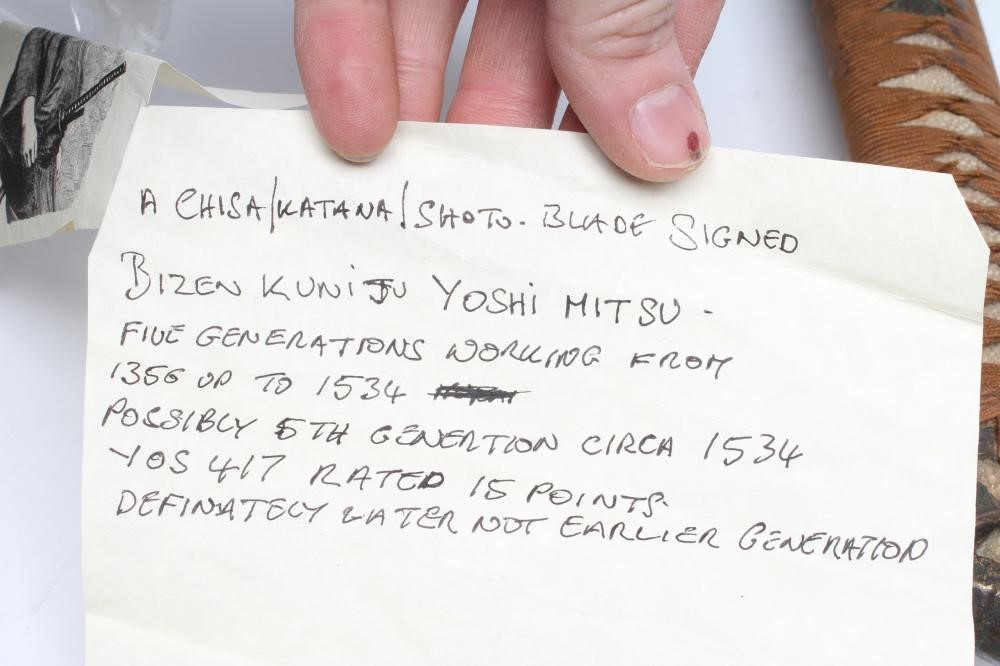 A CHISA/KATANA/SHOTO. BLADE SIGNED
BIZEN KUNI JU YOSHI MITSU -
FIVE GENERATIONS WORKING FROM
1356 UP TO 1534
POSSIBLY 5TH GENERTION CIRCA 1534
YOS 417 RATED 15 POINTS.
DEFINATELY LATER NOT EARLIER GENERATION